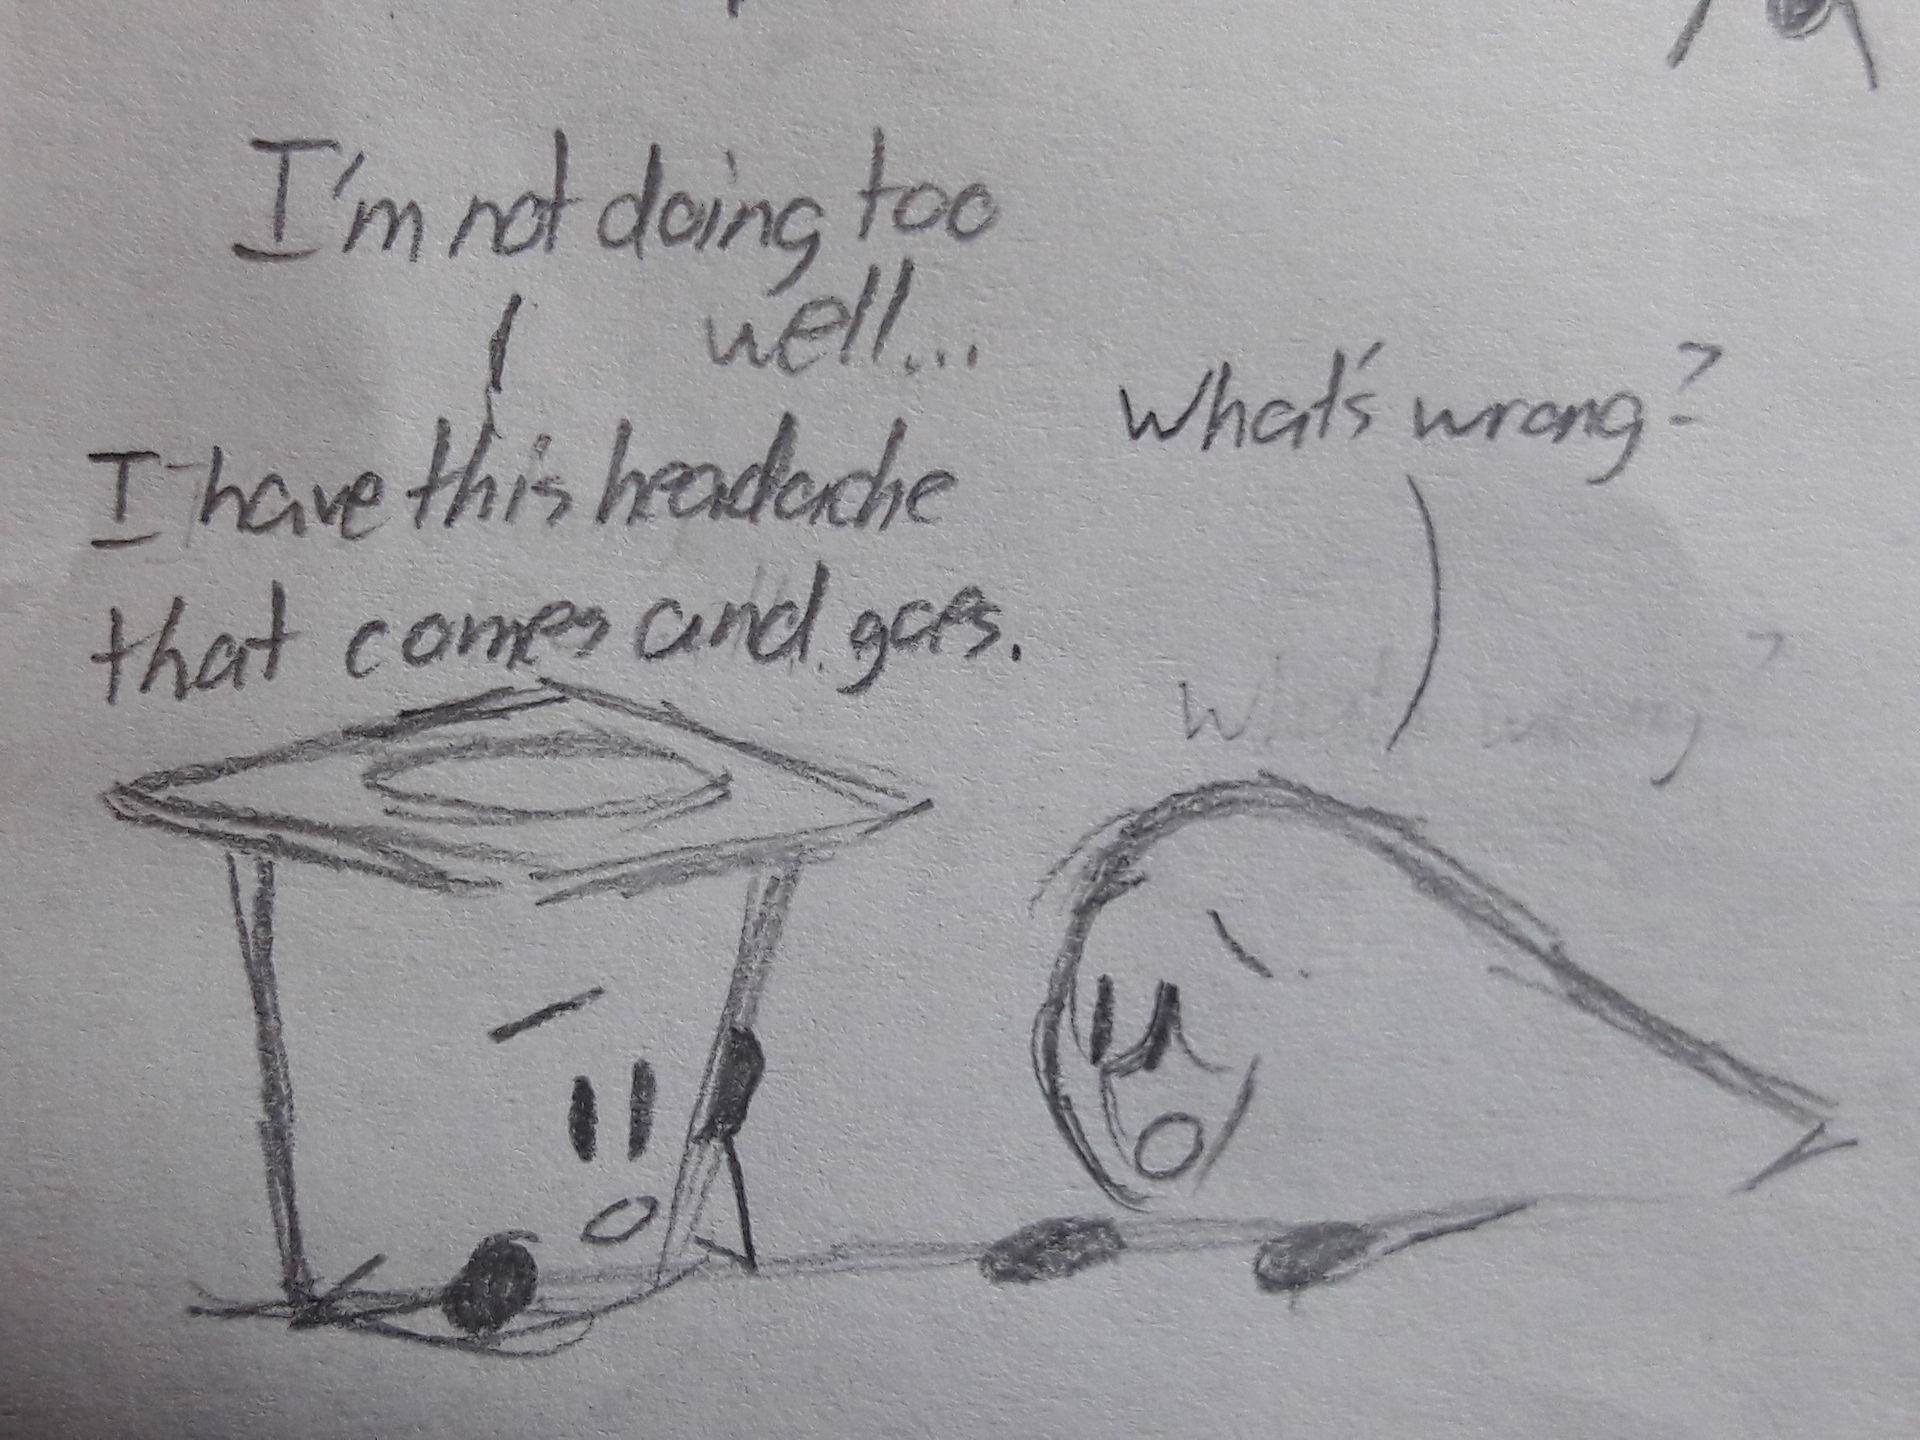 I'm not doing too
well...
I have this headache
that comes and goes.
What's wrong?
What's wrong?